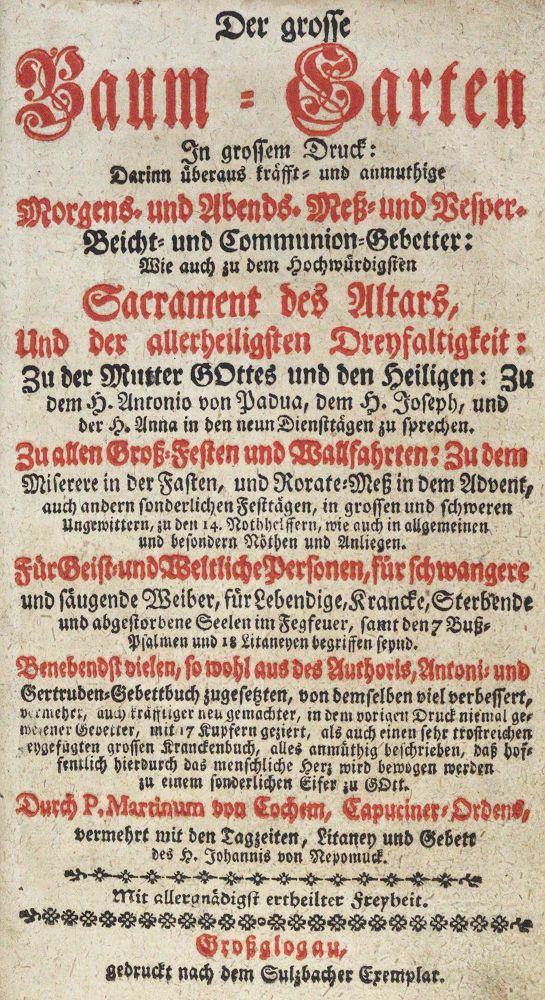 Der grosse
Baum-Garten
In grossem Druck:
Darinn überaus kräfft- und anmuthige
Morgens- und Abends- Meß- und Vesper-
Beicht- und Communion-Gebetter:
Wie auch zu dem Hochwürdigsten
Sacrament des Altars,
Und der allerheiligsten Dreyfaltigkeit:
Zu der Mutter GOttes und den Heiligen: Zu
dem H. Antonio von Padua, dem H. Joseph, und
der H. Anna in den neun Diensttägen zu sprechen.
Zu allen Groß-Festen und Wallfahrten: Zu dem
Miserere in der Fasten, und Rorate-Meß in dem Advent,
auch andern sonderlichen Festtägen, in grossen und schweren
Ungewittern, zu den 14. Nothhelffern, wie auch in allgemeinen
und besondern Nöthen und Anliegen.
Für Geist- und Weltliche Personen, für schwangere
und säugende Weiber, für Lebendige, Krancke, Sterbende
und abgestorbene Seelen im Fegfeuer, samt den 7 Buß-
Psalmen und 18 Litaneyen begriffen seynd.
Benebendst vielen, so wohl aus des Authoris, Antoni- und
Gertruden-Gebettbuch zugesetzten, von demselben viel verbessert,
vermehrt, auch kräfftiger neu gemachter, in dem vorigen Druck niemal ge-
wesener Gebetter, mit 17 Kupfern geziert, als auch einen sehr trostreichen
beygefügten grossen Kranckenbuch, alles anmüthig beschrieben, daß hof-
fentlich hierdurch das menschliche Herz wird bewogen werden
zu einem sonderlichen Eifer zu GOtt.
Durch P. Martinum von Cochem, Capuciner-Ordens,
vermehrt mit den Tagzeiten, Litaney und Gebett
des H. Johannis von Nepomuck.
Mit allergnädigst ertheilter Freyheit.
Großglogau,
gedruckt nach dem Sulzbacher Exemplar.